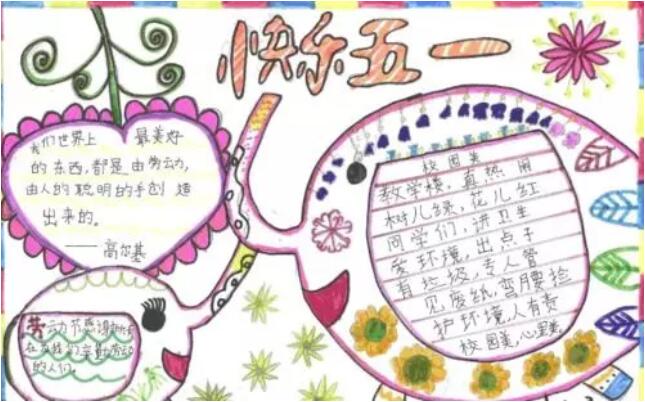 快乐五一
我们世界上 最美好
的东西,都是由劳动,
由人的聪明的手创 造
出来的。
——高尔基
校园美
教学楼,真热闹
树儿绿,花儿红
同学们,讲卫生
爱环境,出点子
有垃圾,专人管
见废纸,弯腰捡
护环境,人有责
校园美,心里美
劳动节
在为我们辛勤劳动
的人们。